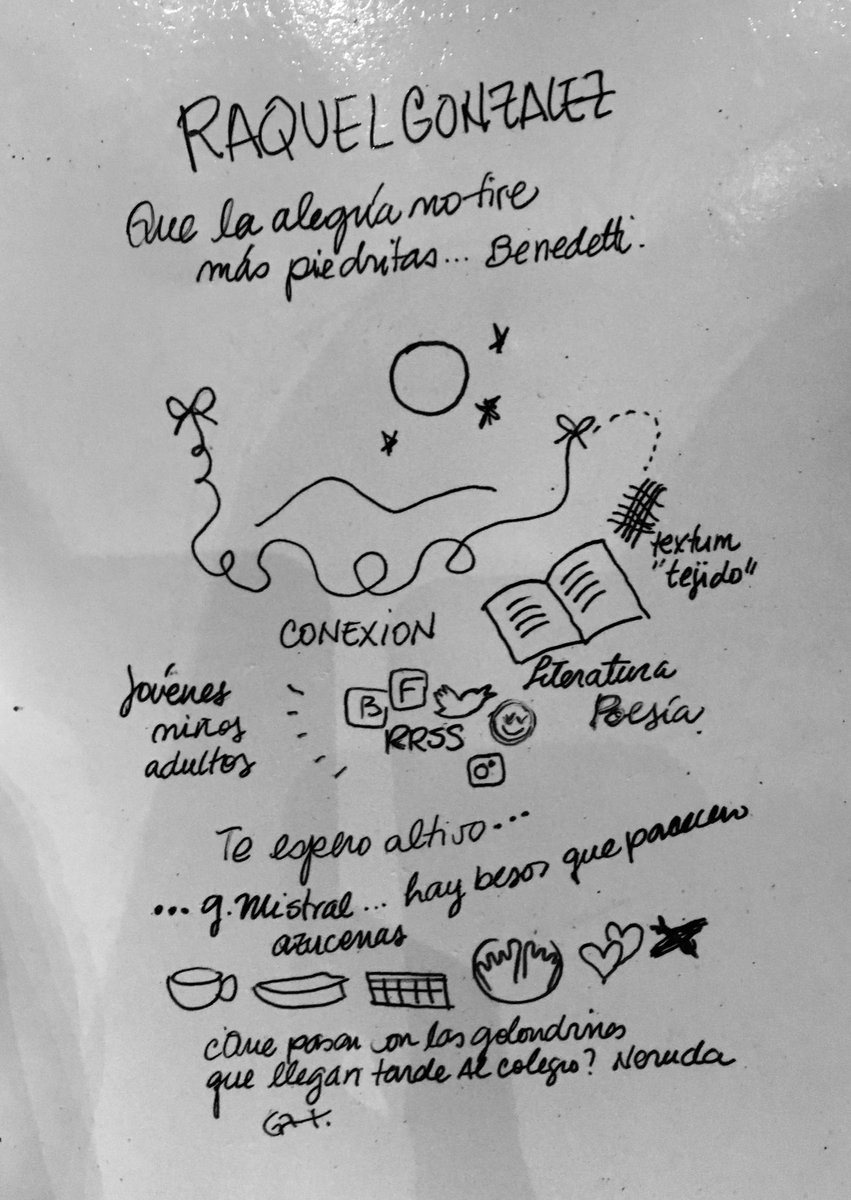 RAQUEL GONZALEZ
Que la alegría no tire
más piedritas... Benedetti.
textum
"tejido"
CONEXION
Literatura
Poesía
Jóvenes
niños
adultos
B F
RRSS
Te espero altivo...
...g. Mistral... hay besos que parecen
azucenas
¿Que pasan con las golondrinas
que llegan tarde Al colegio? Neruda